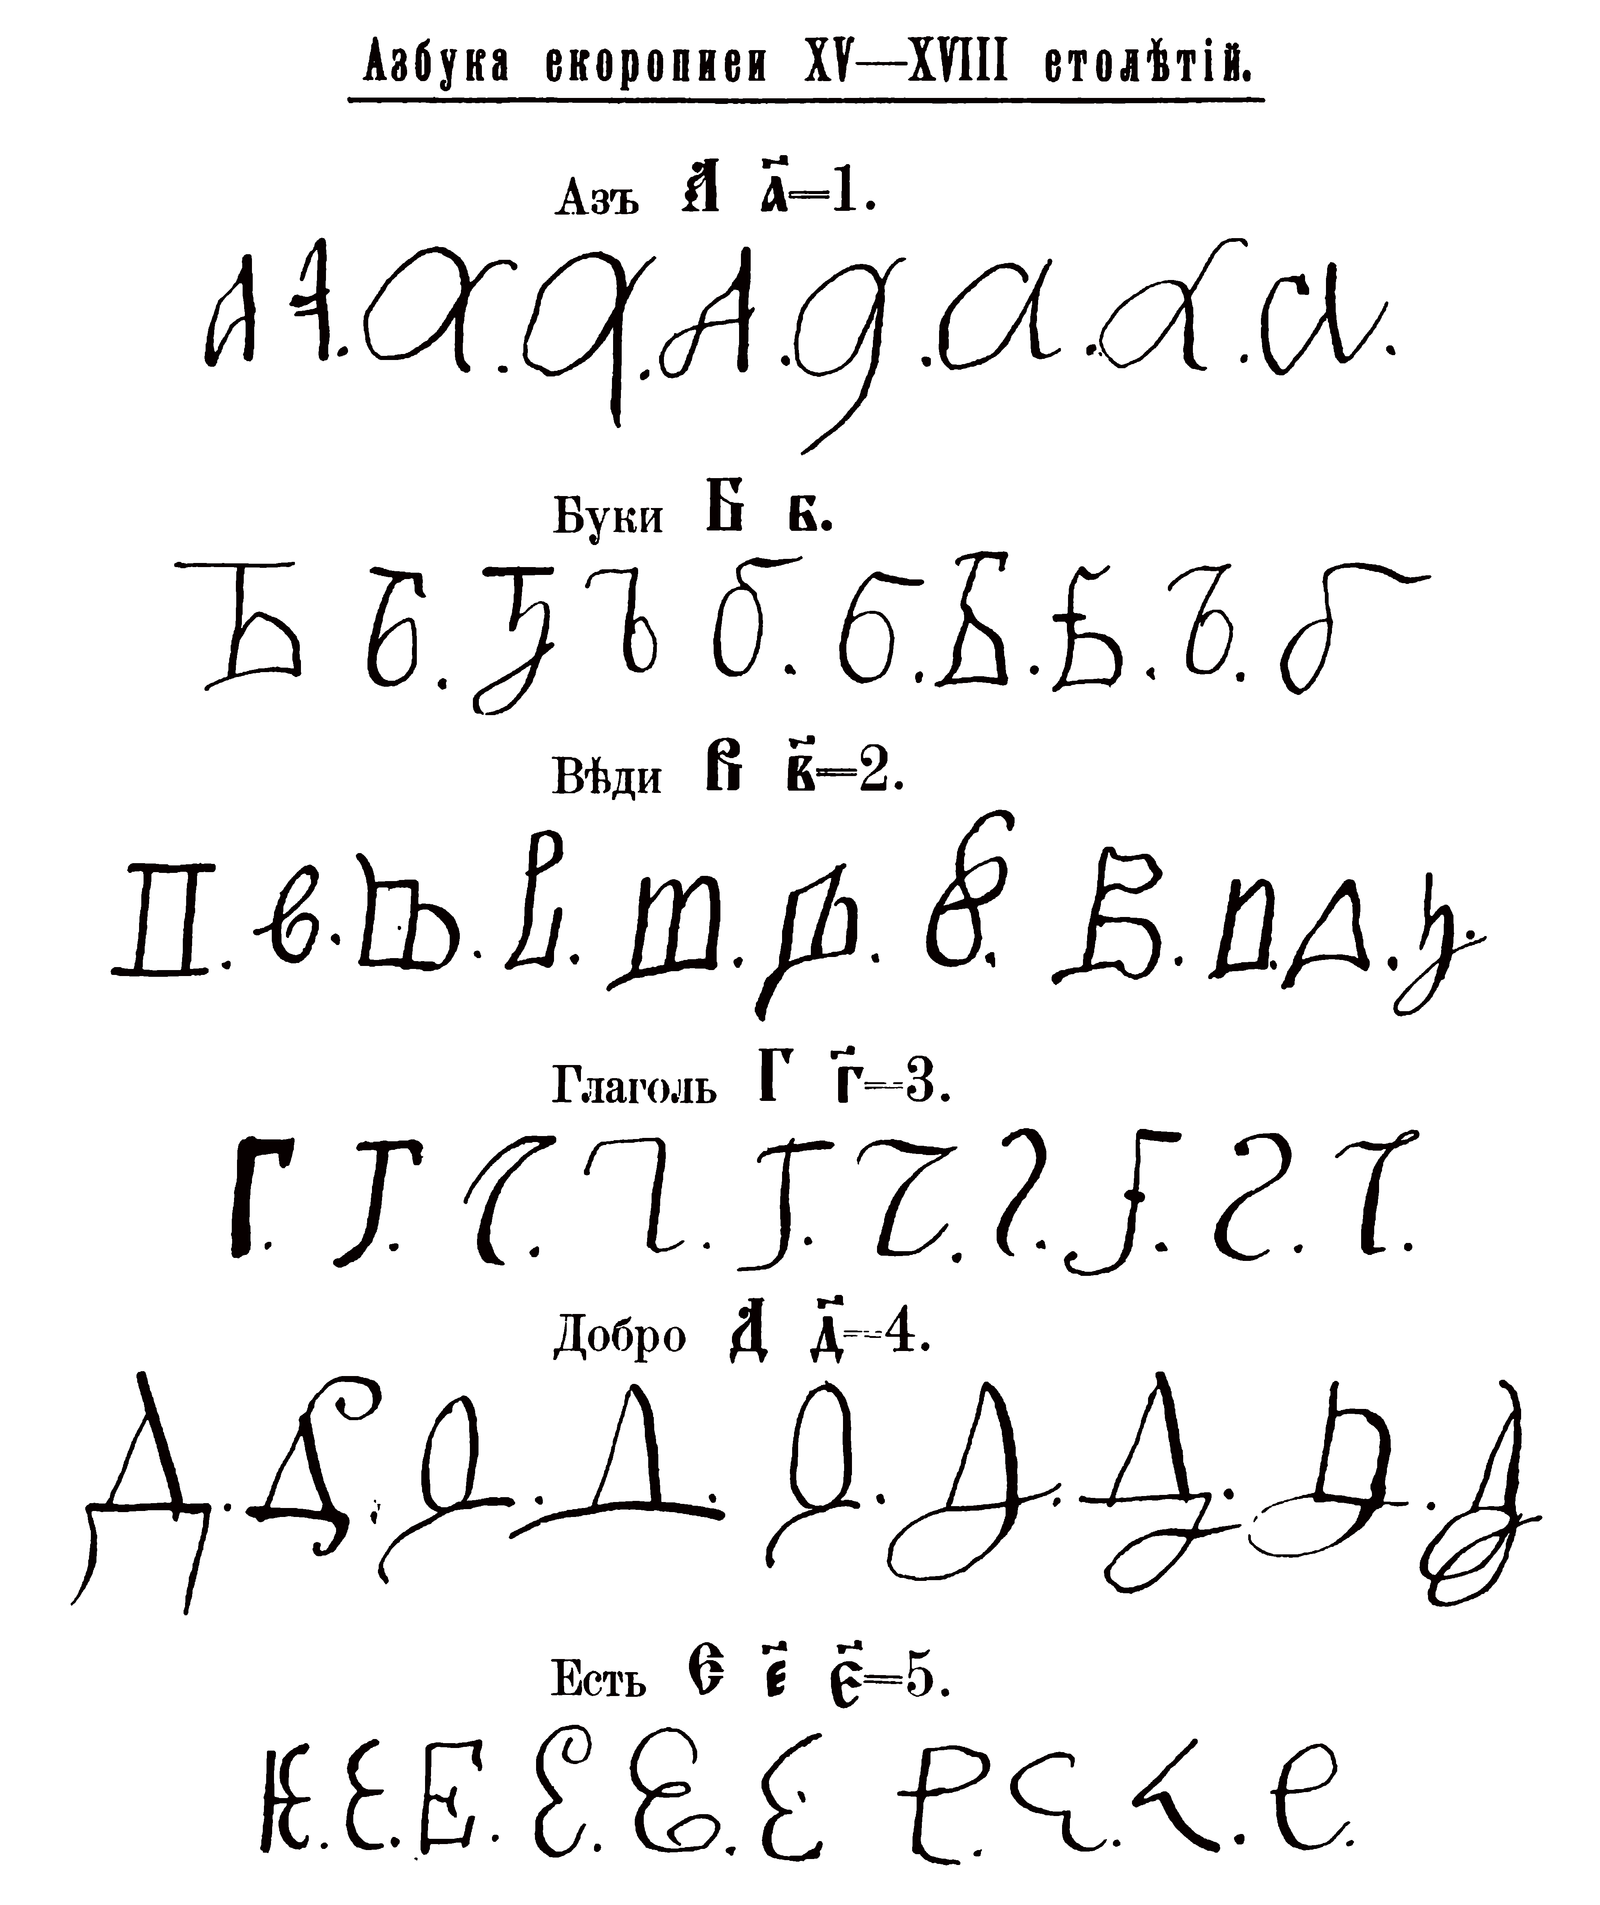 Азбука скорописи XV—XVIII столѣтій.
Азъ А а҃=1.
А А. а. а. А. а. а. а. а.
Буки Б б.
Б б. Б Б б. б. Б. Б. Б. б
Вѣди В в҃=2.
В. в. В. В. В. В. в. В. В. В. В.
Глаголь Г г҃=3.
Г. Г. Г. Г. Г. Г. Г. Г. Г. Г.
Добро Д д҃=4.
Д. Д. Д. Д. Д. Д. Д. Д. Д
Есть Є є҃ є҃=5.
Ѥ. Є. Е. Є. Є. Є Е. Є. Є. е.